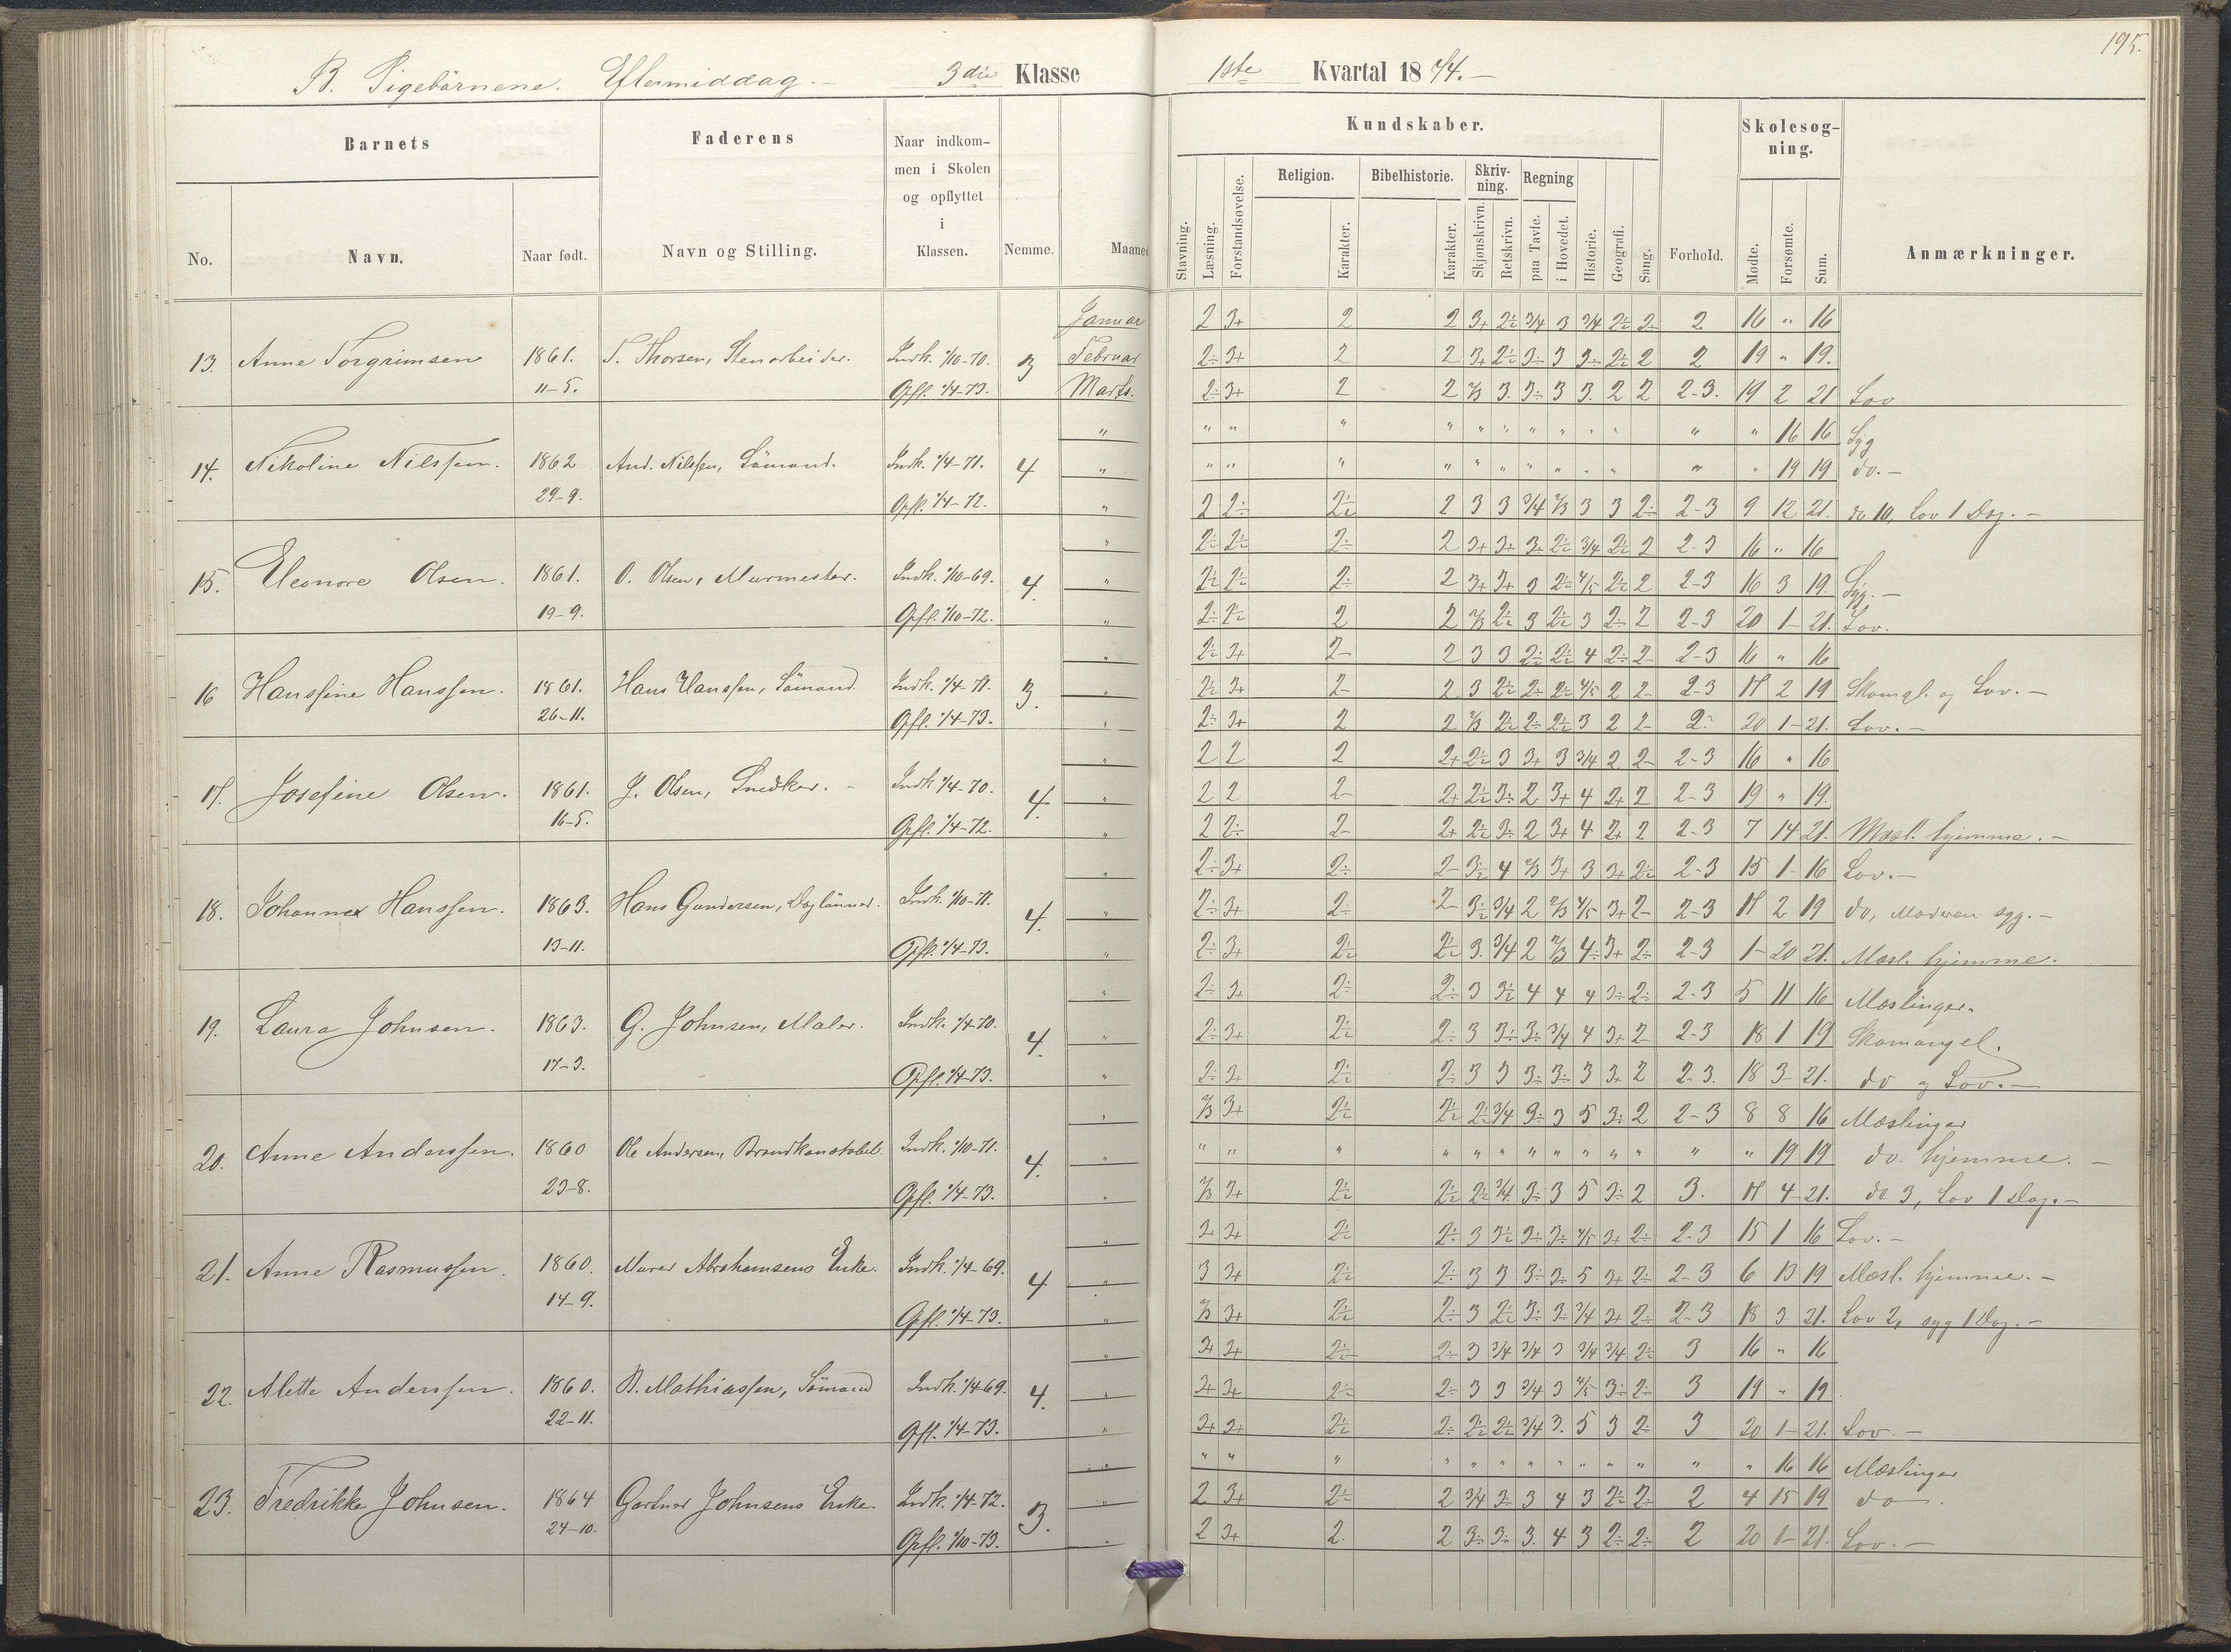 195.
B. Pigebörnene. Eftermiddag. — 3die Klasse 1ste Kvartal 18 74. —
Barnets Faderens Naar indkommen i Skolen og opflyttet i Klassen. Nemme. Maaned Kundskaber. Forhold. Skolesøgning. Anmærkninger.
No. Navn. Naar født. Navn og Stilling.
Stavning. Læsning. Forstandsøvelse. Religion. Karakter. Bibelhistorie. Karakter. Skrivning. Skjønskrivn. Retskrivn. Regning paa Tavte. i Hovedet. Historie. Geografi. Sang. Mødte. Forsømte. Sum.
Januar 2 3+ 2 2 3+ 2 16 " 16
13. Anne Torgrimsen 1861. T. Thorsen, Stenarbeider. Indk. 1/10-70. 3 Februar 2÷ 3+ 2 2 3+ 2 2 19 " 19.
11-5. Opfl. 1/4-73. Marts. 2÷ 3+ 2 2 2/3 3. 3÷ 3 3. 2 2 2-3. 19 2 21 Lov
" " " " " " " " " " " " " " 16 16 Syg
14. Nikoline Nilssen. 1862 And. Nilssen, Sömand. Indk. 1/4-71. 4 " " " " " " " " " " " " " 19 19 do. —
29-9. Opfl. 1/4-72. " 2 2÷ 2 3 3 3/4 2/3 3 3 2÷ 2-3 9 12 21. do 10, Lov 1 Dag. —
" 2÷ 2 3+ 3÷ 3/4 2 2-3 16 " 16
15. Eleonore Olsen. 1861. O. Olsen, Murmester. Indk. 1/10-69. 4. " 2÷ 2 3+ 3+ 3 4/5 2 2-3 16 3 19. Syg. —
19-9. Opfl. 1/10-72. " 2÷ 2 2 2/3 3 3 2÷ 2 2-3 20 1 21. Lov.
" 3+ 2 2 3 3 4 2÷ 2 2-3 16 " 16
16 Hanssine Hanssen. 1861. Hans Hanssen, Sömand Indk. 1/4-71. 3. " 3+ 2 2 3 4/5 2 2 2-3 17 2 19 Skomgl. og Lov. —
26-11. Opfl. 1/4-73. " 2÷ 3+ 2 2 2/3 3 2 2 2÷ 20 1 21. Lov. —
" 2 2 2 2+ 3 3+ 3 3/4 2 2 2-3 16 " 16
17. Josefine Olsen. 1861. J. Olsen, Snedker. — Indk 1/4-70. 4. " 2 2 2 2+ 3÷ 2 3+ 4 2+ 2 2-3 19 " 19.
16-5. Opfl. 1/4-72. " 2 2÷ 2 2+ 3÷ 2 3+ 4 2+ 2 2-3 7 14 21. Mæsl. hjemme. —
" 2÷ 3+ 2÷ 2 4 2/3 3+ 3 3+ 2-3 15 1 16 Lov. —
18. Hanssen. 1863. Hans Gundersen, Daglönner. Indk. 1/10-71. 4. " 2÷ 3+ 2÷ 2 3/4 2 2/3 4/5 3+ 2 2-3 17 2 19 do, Moderen syg. —
13-11. Opfl. 1/4-73. " 2÷ 3+ 3. 3/4 2 2/3 4÷ 3+ 2÷ 2-3 1 20 21. Mæsl. hjemme.
" 2÷ 3+ 2÷ 2÷ 3 4 4 4 3÷ 2÷ 2-3 5 11 16 Mæslinger.
19. Laura Johnsen. 1863. G. Johnsen, Maler. Indk. 1/4-70. 4. " 2÷ 3+ 2÷ 3 3÷ 3÷ 3/4 4 3+ 2 2-3 18 1 19 Skomangel.
17-3. Opfl. 1/4-73. " 2÷ 3+ 2÷ 3 3 3÷ 3÷ 3 3+ 2 2-3. 18 3 21. do og Lov. —
" 2/3 3+ 3/4 3÷ 3 5 3÷ 2 2-3 8 8 16 Mæslinger
20. Anne Anderssen. 1860 Ole Andersen, Brandkonstabel. Indk. 1/10-71. 4. " " " " " " " " " " " " " " " 19 19 do. hjemme. —
23-8. Opfl. 1/4-73. " 2/3 3+ 3/4. 3÷ 3 5 3÷ 2 3. 17 4 21. do 3, Lov 1 Dag. —
" 3+ 3+ 2÷ 3 3÷ 3÷ 4/5 3+ 2÷ 2-3 15 1 16 Lov. —
21. Anne Rasmussen. 1860. Murer Abrahamsens Enke. Indk. 1/4-69. 4 " 3 3+ 2÷ 3 3 3÷ 3÷ 5 3+ 2÷ 2-3 6 13 19 Mæsl. hjemme. —
14-9. Opfl. 1/4-73. " 2/3 3+ 2÷ 3 3÷ 3÷ 3/4 3+ 2÷ 2-3 18 3 21. Lov 2, syg 1 Dag. —
" 3+ 3+ 2÷ 3 3/4 3/4 3 3/4 3/4 3 16 " 16
22. Alette Anderssen. 1860. B. Mathiassen, Sömand Indk. 1/4-69. 4. " 3+ 3+ 2÷ 3 3 3/4 3 4/5 3÷ 2÷ 3 19 " 19
22-11. Opfl. 1/4-73. " 3+ 3+ 2÷ 3/4 3. 5 3 2÷ 3 20 1 21. Lov. —
" " " " " " " " " " " " " " " 16 16 Mæslinger
23. Fredrikke Johnsen. 1864 Gartner Johnsens Enke. Indk. 1/4-72. 3. " 2 3+ 2 3/4 3÷ 3 4 3 2÷ 2 4 15 19 do.
24-10. Opfl. 1/10-73. " 2 3+ 2. 2 3÷ 3÷ 3. 4 3 2÷ 2÷ 2 20 1 21. Lov. —